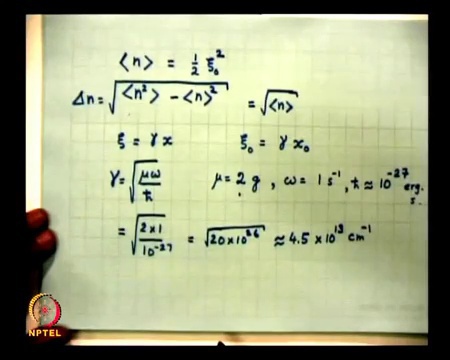 <n> = 1/2 ξ₀²
Δn = √(<n²> - <n>²) = √<n>
ξ = γ x ξ₀ = γ x₀
γ = √(μω/ħ) μ = 2 g , ω = 1 s⁻¹ , ħ ≈ 10⁻²⁷ erg. s.
= √(2×1/10⁻²⁷) = √(20×10²⁶) ≈ 4.5 × 10¹³ cm⁻¹
NPTEL